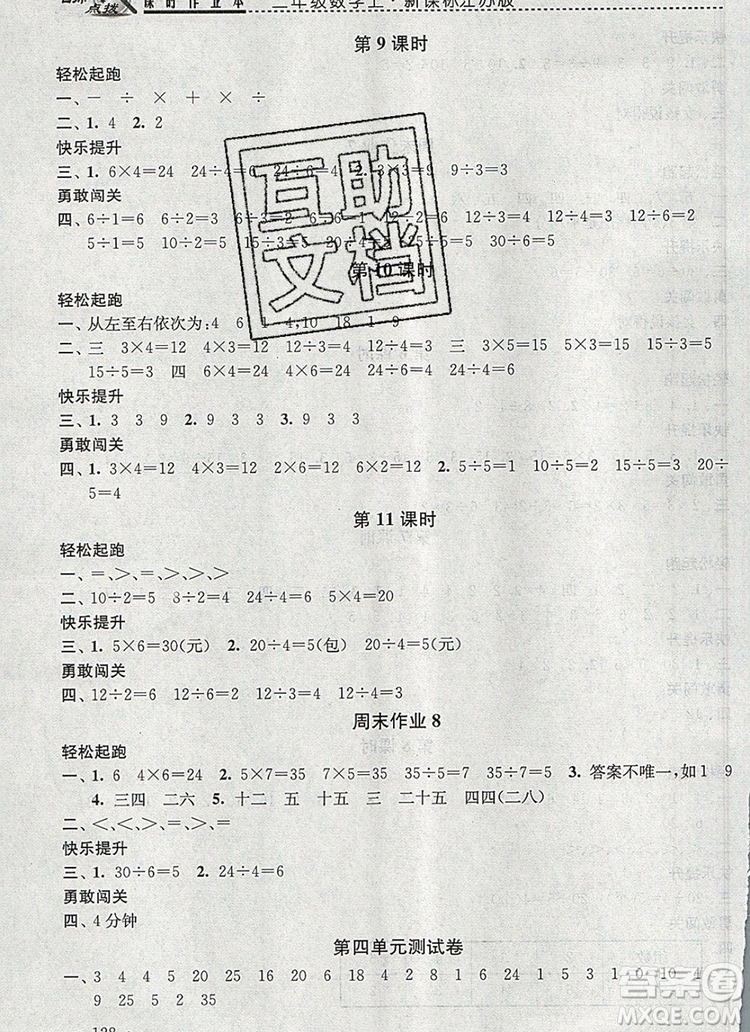 点拨 课时作业本 二年级数学上·新课标江苏版
第 9 课时
轻松起跑
一、－ ÷ × ＋ × ÷
二、1. 4 2. 2
快乐提升
三、1. 6×4=24 24÷6=4 24÷4=6 2. 3×3=9 9÷3=3
勇敢闯关
四、6÷1=6 6÷2=3 6÷3=2 6÷6=1 12÷2=6 12÷3=4 12÷4=3 12÷6=2
5÷1=5 10÷2=5 15÷3=5 20÷4=5 25÷5=5 30÷6=5
第 10 课时
轻松起跑
一、从左至右依次为:4 6 1 4,10 18 1 9
二、三 3×4=12 4×3=12 12÷3=4 12÷4=3 三 3×5=15 5×3=15 15÷3=5
15÷5=3 四 4×6=24 6×4=24 24÷4=6 24÷6=4
快乐提升
三、1. 3 3 9 2. 9 3 3 3. 9 3 3
勇敢闯关
四、1. 3×4=12 4×3=12 2×6=12 6×2=12 2. 5÷5=1 10÷5=2 15÷5=3 20÷
5=4
第 11 课时
轻松起跑
一、=、>、=、>、>、>
二、10÷2=5 8÷2=4 24÷6=4 5×4=20
快乐提升
三、1. 5×6=30(元) 2. 20÷4=5(包) 20÷5=4(元)
勇敢闯关
四、12÷2=6 12÷3=4 12÷4=3 12÷6=2
周末作业 8
轻松起跑
一、1. 6 4×6=24 2. 5×7=35 7×5=35 35÷5=7 35÷7=5 3. 答案不唯一,如1 9
4. 三四 二六 5. 十二 五 十五 三 二十五 四四(二八)
二、<、<、>、>、=
快乐提升
三、1. 30÷6=5 2. 24÷4=6
勇敢闯关
四、4 分钟
第四单元测试卷
一、3 4 4 24 25 20 16 20 18 4 2 8 9 24 1 5 3 1 0 10 4
9 25 5 24 5 5
128
互助
文档
答案圈
MXQE.COM